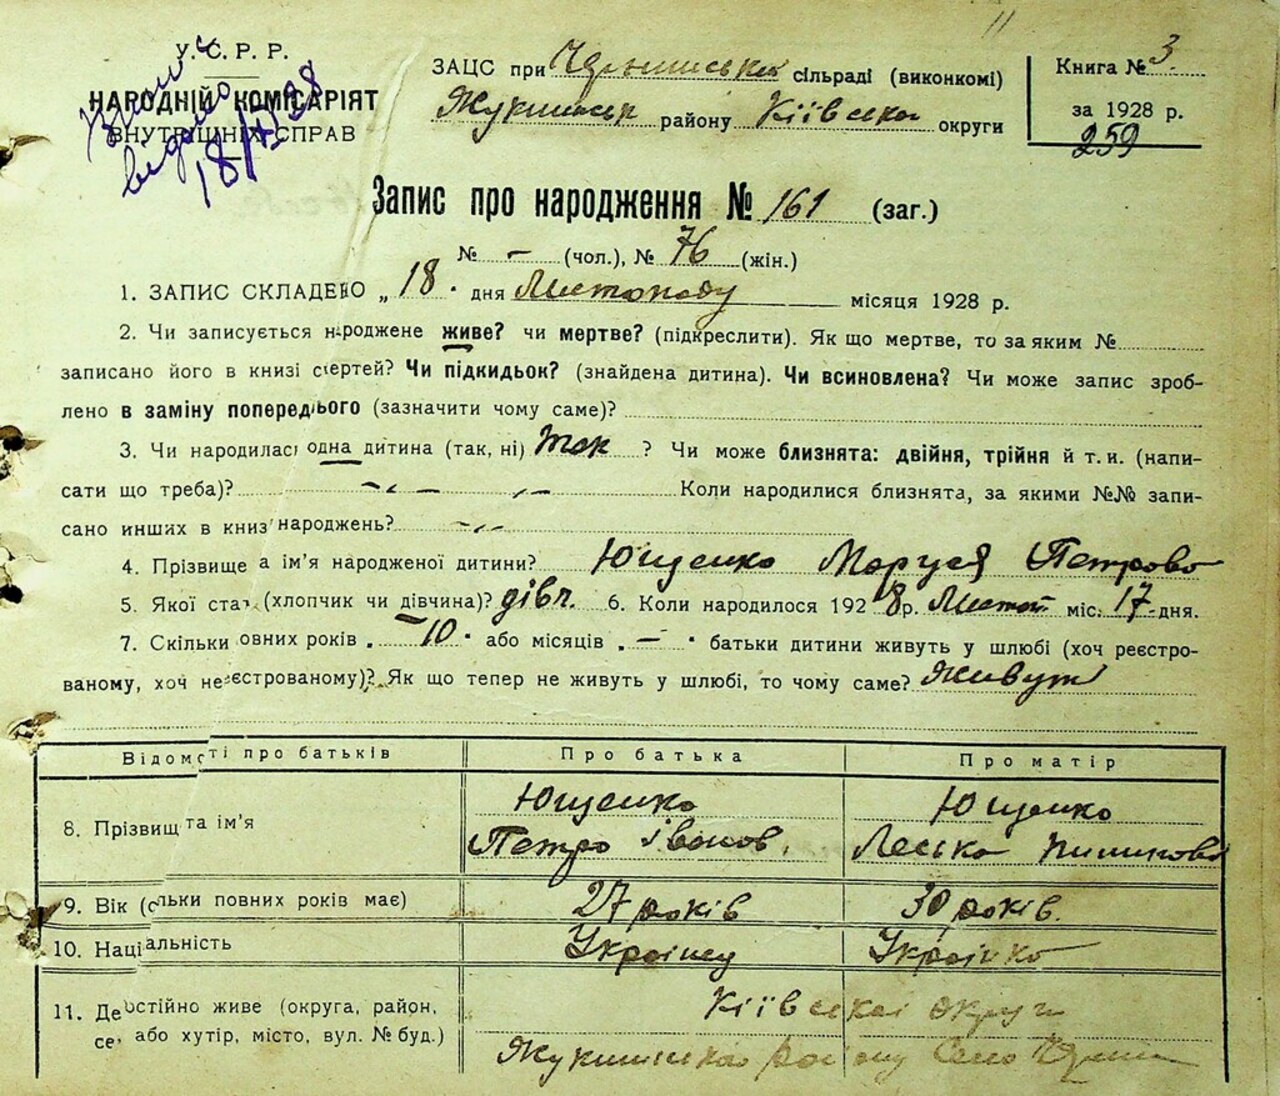 11
У.С.Р.Р.
НАРОДНІЙ КОМІСАРІЯТ
ВНУТРІШНІХ СПРАВ
18/XI 28
ЗАЦС при сільраді (виконкомі)
району Київської округи
Книга № 3
за 1928 р.
259
Запис про народження № 161 (заг.)
№ - (чол.), № 76 (жін.)
1. ЗАПИС СКЛАДЕНО „18" дня Листопаду місяця 1928 р.
2. Чи записується народжене живе? чи мертве? (підкреслити). Як що мертве, то за яким №
записано його в книзі смертей? Чи підкидьок? (знайдена дитина). Чи всиновлена? Чи може запис зроб-
лено в заміну попереднього (зазначити чому саме)?
3. Чи народилась одна дитина (так, ні) Так ? Чи може близнята: двійня, трійня й т. и. (напи-
сати що треба)? Коли народилися близнята, за якими №№ запи-
сано инших в книз народжень?
4. Прізвище а ім'я народженої дитини? Ющенко Маруся Петрова
5. Якої стат (хлопчик чи дівчина)? дівч. 6. Коли народилося 1928 р. Листоп. міс. 17 дня.
7. Скільки овних років „10" або місяців „-" батьки дитини живуть у шлюбі (хоч реєстро-
ваному, хоч не еєстрованому)? Як що тепер не живуть у шлюбі, то чому саме? Живуть
Відомості про батьків Про батька Про матір
8. Прізвищ та ім'я Ющенко Ющенко
Петро Іванов.
9. Вік (скільки повних років має) 27 років 30 років.
10. Національність Українец Українка
11. Де постійно живе (округа, район, Київської округи
се, або хутір, місто, вул. № буд.) району Село